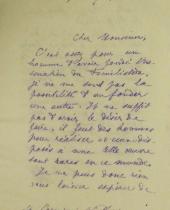 Cher Monsieur,
C'est assez pour un
homme d'avoir fondé l'As-
sociation du Familistère,
je ne me sens pas la
possibilité d'en fonder
une autre. Il ne suffit
pas d'avoir le désir de
faire, il faut des hommes
pour réaliser et
à une telle œuvre
sont rares en ce monde.
Je ne puis donc rien
vous laisser espérer de